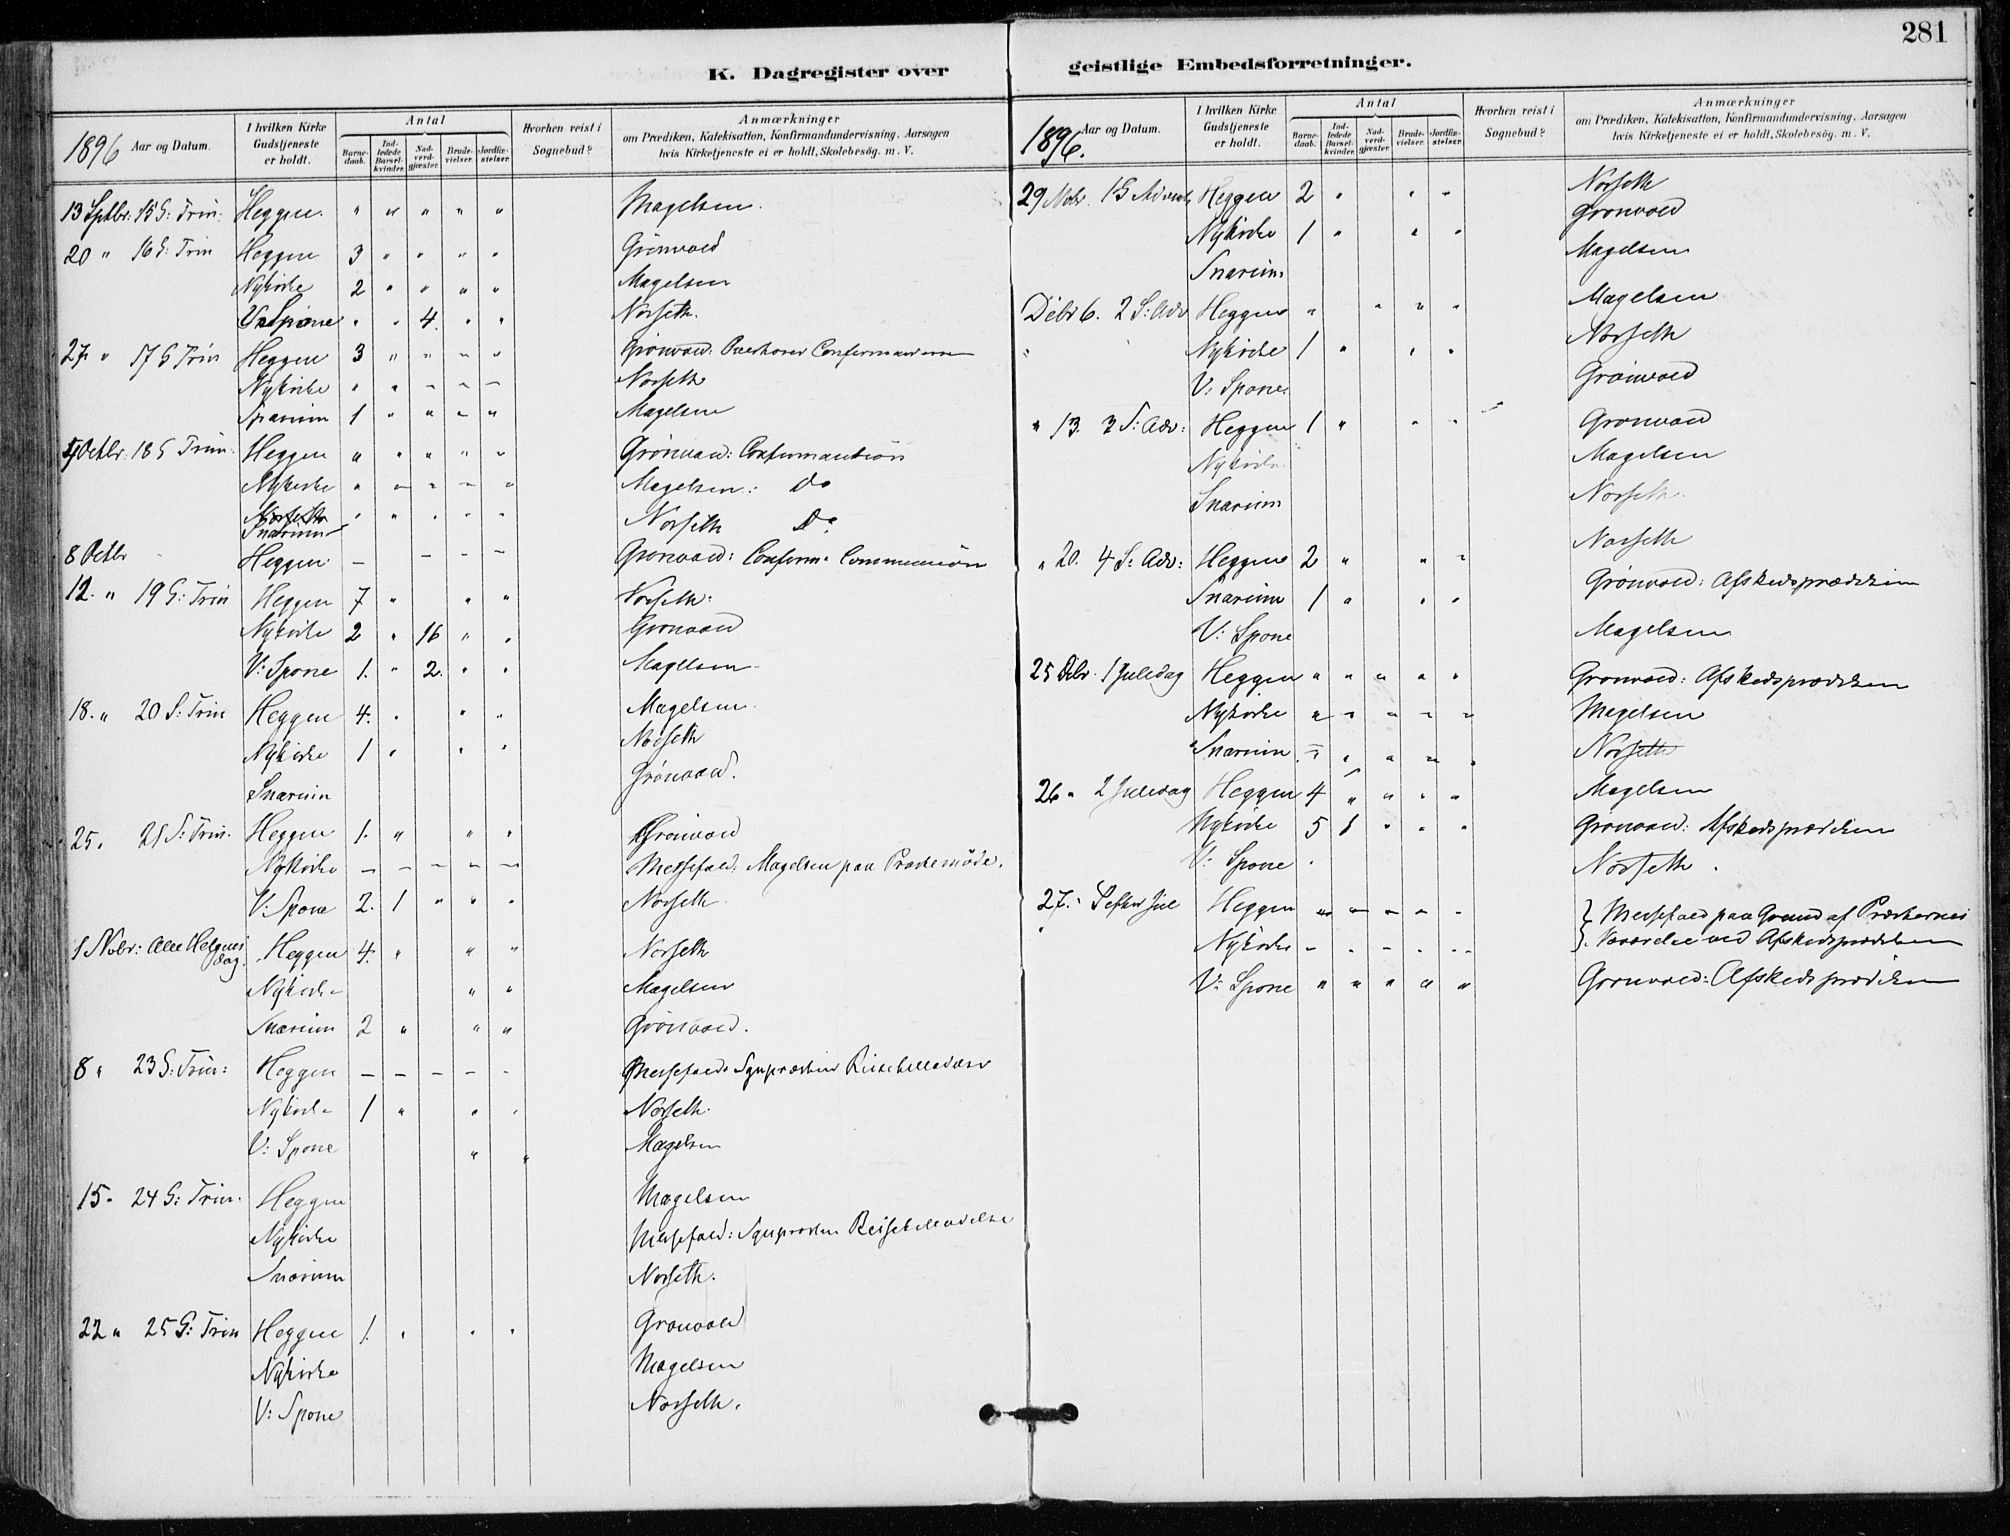 281
K. Dagregister over geistlige Embedsforretninger.
1896 Aar og Datum.
I hvilken Kirke Gudstjeneste er holdt.
Antal
Barnedaab.
Indledede Barselkvinder.
Nadverdgjæster.
Brudevielser.
Jordfæstelser.
Hvorhen reist i Sognebud?
Anmærkninger
om Prædiken, Katekisation, Konfirmandundervisning, Aarsagen
hvis Kirketjeneste ei er holdt, Skolebesög. m. V.
13 Sptbr: 15 S: Trin: Heggen. " " " " " Magelsen.
20 " 16 S: Trin Heggen 3 " " " " Grönvold
Nykirke 2 " " " " Magelsen
V: Spone " " 4. " " Norseth.
27 " 17 S Trin Heggen 3 " " " " Grönvold: Overhører Confirmanderne
Nykirke " " - - - Norseth
Snarum 1 " " " " Magelsen
4 Octbr: 18 S Trin: Heggen " " " " " Grönvold: Confirmantion
Nykirke " - " - " Magelsen: Do
Snarum " " " " " Norseth Do.
8 Octbr Heggen - - - - Grönvold: Conferm. Communion
12. " 19 S: Trin Heggen 7 " " " Norseth.
Nykirke 2 " 16 " " Grönvold
V: Spone 1. " 2. " " Magelsen
18. " 20 S: Trin Heggen 4. " " " Magelsen.
Nykirke 1 " " " Norseth
Snarum Grönvold.
25. 21 S: Trin. Heggen 1. " " " Grönvold
Nykirke - - - - - Messefald: Magelsen paa Præstemöde.
V: Spone 2. 1 " " " Norseth
1 Novbr: Alle Helgnes dag. Heggen 4. " " " Norseth
Nykirke " " Magelsen
Snarum 2 " " " Grönvold.
8 " 23 S: Trin: Heggen - - - - - Messefald: Sgnpræstens Reisebilledelse
Nykirke 1 " " " Norseth.
V: Spone " " Magelsen
15 " 24 S: Trin. Heggen Magelsen
Nykirke Messefald: Sgnpræsten Reisebilledelse
Snarum Norseth.
22 " 25 S: Trin Heggen 1. " " " Grönvold
Nykirke Magelsen
V: Spone Norseth.
1896. Aar og Datum.
I hvilken Kirke Gudstjeneste er holdt.
Antal
Barnedaab.
Indledede Barselkvinder.
Nadverdgjæster.
Brudevielser.
Jordfæstelser.
Hvorhen reist i Sognebud?
Anmærkninger
om Prædiken, Katekisation, Konfirmandundervisning, Aarsagen
hvis Kirketjeneste ei er holdt, Skolebesög. m. V.
29 Nobr. 1 S Advent Heggen 2 " " " Norseth
Nykirke 1 " " " Grönvold
Snarum Magelsen
Debr 6. 2 S: Adv Heggen " " " " Magelsen
" Nykirke 1 " " " Norseth
V: Spone. Grönvold
" 13. 3 S: Adv: Heggen 1 " " " Grönvold
Nykirke Magelsen
Snarum Norseth.
" 20. 4 S: Adv: Heggen 2 " " " Norseth
Snarum 1 " " " Grönvold: Afskedsprædiken
V: Spone Magelsen
25 Debr. 1 Juledag Heggen " " " " " Grönvold: Afskedsprædiken
Nykirke " " " " " Magelsen
Snarum " " " " " Norseth
26 " 2 Juledag Heggen 4 " " " " Magelsen
Nykirke 5 1 " " " Grönvold: Afskedsprædiken
V: Spone " Norseth.
27. " S efter Jul Heggen - - - - - } Messefald paa Grund af Præsternes
" Nykirke - - - - - } Nærværelse ved Afskedsprædiken
V: Spone " " " " " Grönvold: Afskedsprædiken